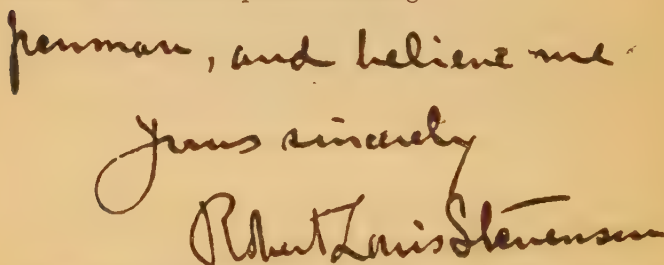 penman, and believe me
Yours sincerely
Robert Louis Stevenson